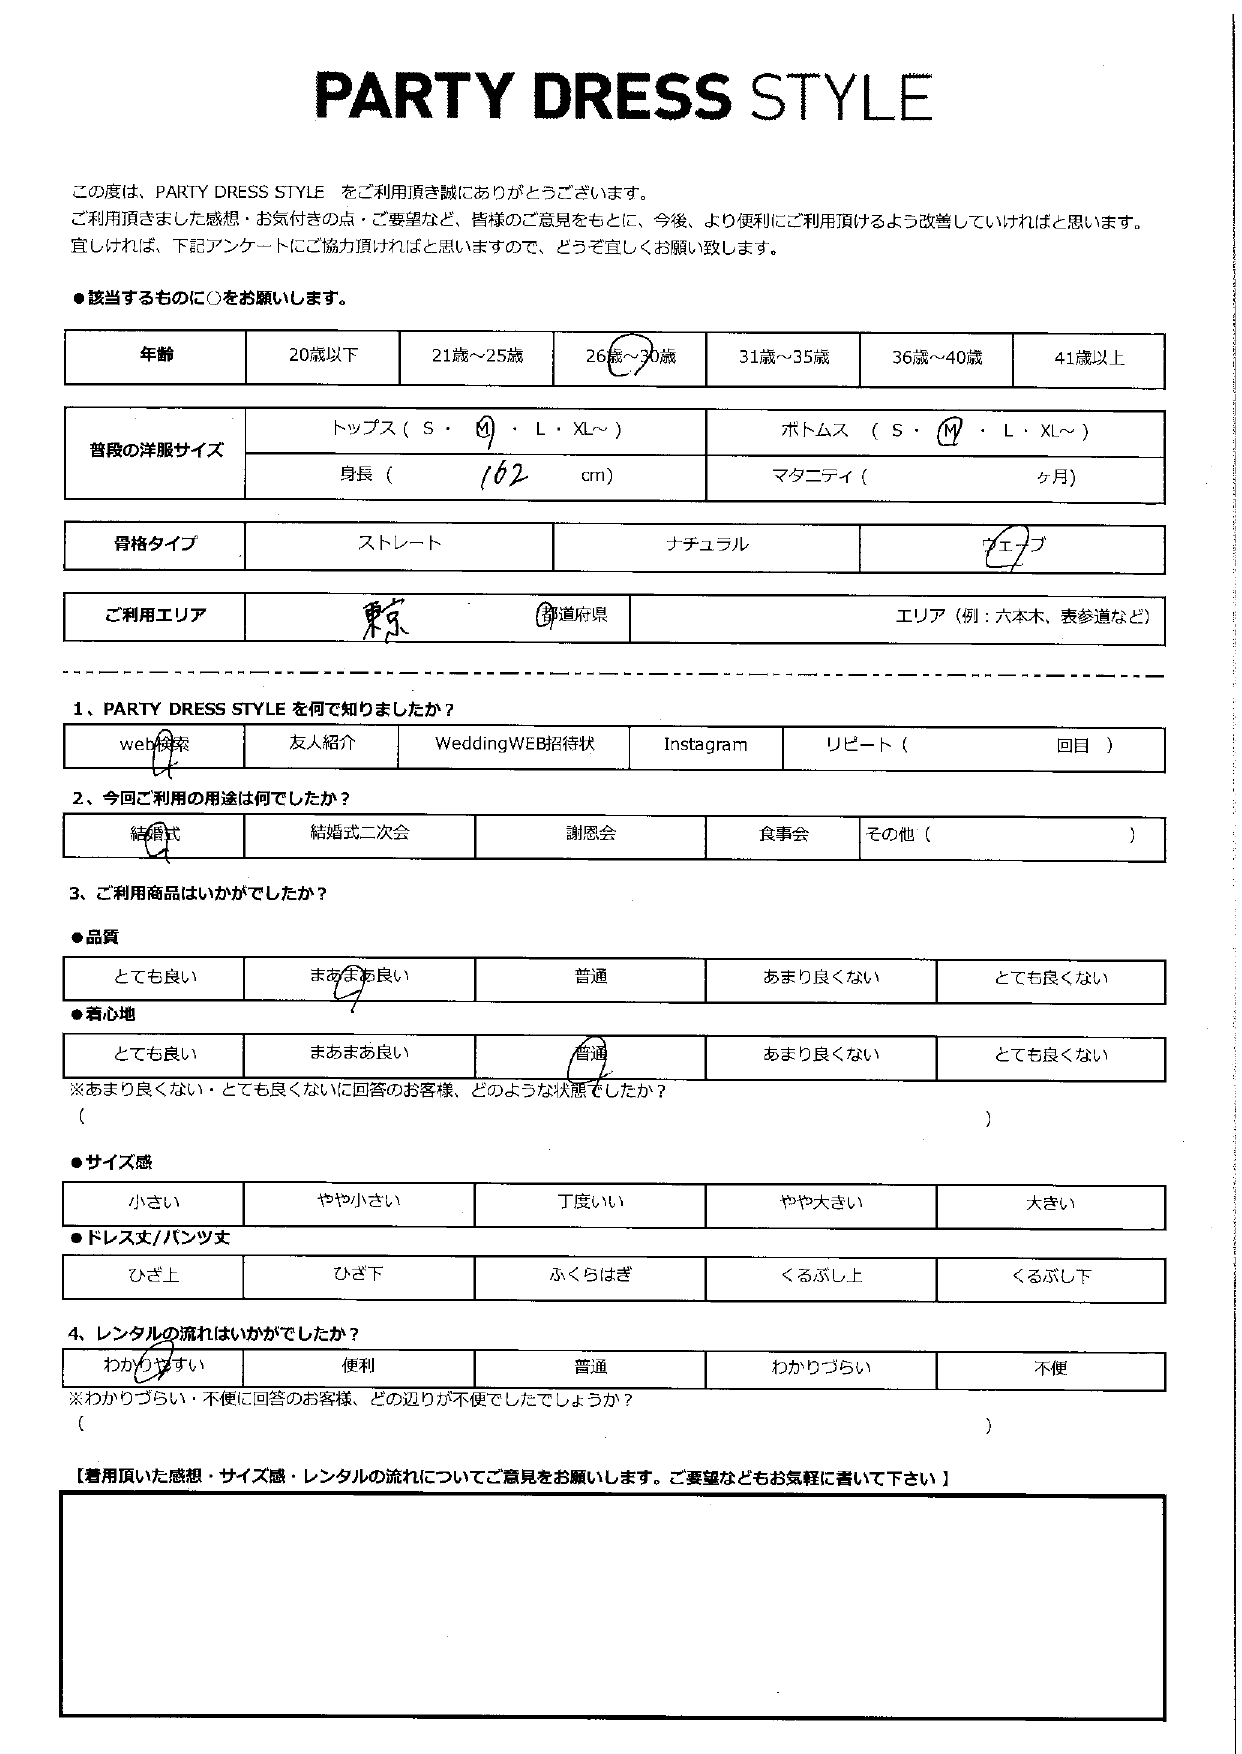 PARTY DRESS STYLE
この度は、PARTY DRESS STYLE をご利用頂き誠にありがとうございます。
ご利用頂きました感想・お気付きの点・ご要望など、皆様のご意見をもとに、今後、より便利にご利用頂けるよう改善していければと思います。
宜しければ、下記アンケートにご協力頂ければと思いますので、どうぞ宜しくお願い致します。
●該当するものに○をお願いします。
年齢 20歳以下 21歳～25歳 26歳～30歳 31歳～35歳 36歳～40歳 41歳以上
普段の洋服サイズ トップス ( S ・ M ・ L ・ XL～ ) ボトムス ( S ・ M ・ L ・ XL～ )
身長 ( 162 cm) マタニティ ( ヶ月)
骨格タイプ ストレート ナチュラル ウェーブ
ご利用エリア 東京 都道府県 エリア（例：六本木、表参道など）
1、PARTY DRESS STYLE を何で知りましたか？
web検索 友人紹介 WeddingWEB招待状 Instagram リピート ( 回目 )
2、今回ご利用の用途は何でしたか？
結婚式 結婚式二次会 謝恩会 食事会 その他 ( )
3、ご利用商品はいかがでしたか？
●品質
とても良い まあまあ良い 普通 あまり良くない とても良くない
●着心地
とても良い まあまあ良い 普通 あまり良くない とても良くない
※あまり良くない・とても良くないに回答のお客様、どのような状態でしたか？
( )
●サイズ感
小さい やや小さい 丁度いい やや大きい 大きい
●ドレス丈/パンツ丈
ひざ上 ひざ下 ふくらはぎ くるぶし上 くるぶし下
4、レンタルの流れはいかがでしたか？
わかりやすい 便利 普通 わかりづらい 不便
※わかりづらい・不便に回答のお客様、どの辺りが不便でしたでしょうか？
( )
【着用頂いた感想・サイズ感・レンタルの流れについてご意見をお願いします。ご要望などもお気軽に書いて下さい 】